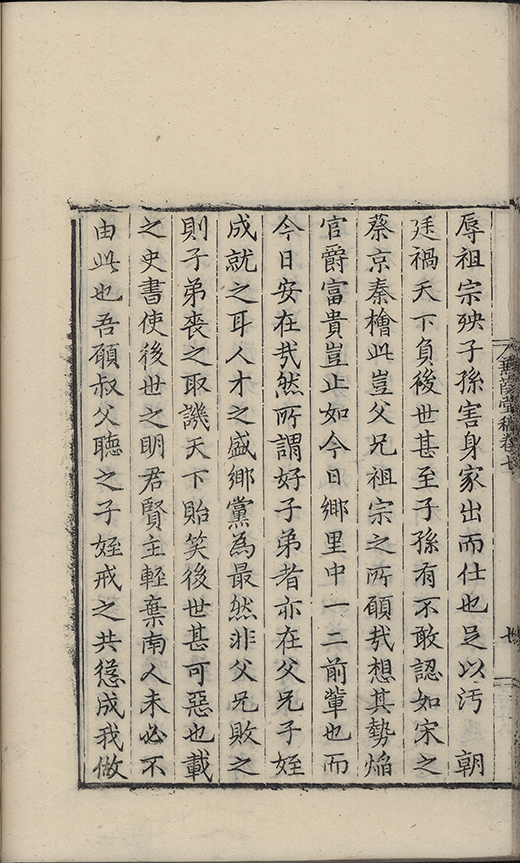 辱祖宗殃子孫害身家出而仕也足以汚　朝
廷禍天下負後世甚至子孫有不敢認如宋之
蔡京秦檜此豈父兄祖宗之所願㢤想其勢焰
官爵富貴豈止如今日鄉里中一二前輩也而
今日安在㢤然所謂好子弟者亦在父兄子姪
成就之耳人才之盛鄉黨為最然非父兄敗之
則子弟喪之取譏天下貽笑後世甚可惡也載
之史書使後世之明君賢主輕棄南人未必不
由此也吾願叔父聽之子姪戒之共
成我做
堂稿卷七